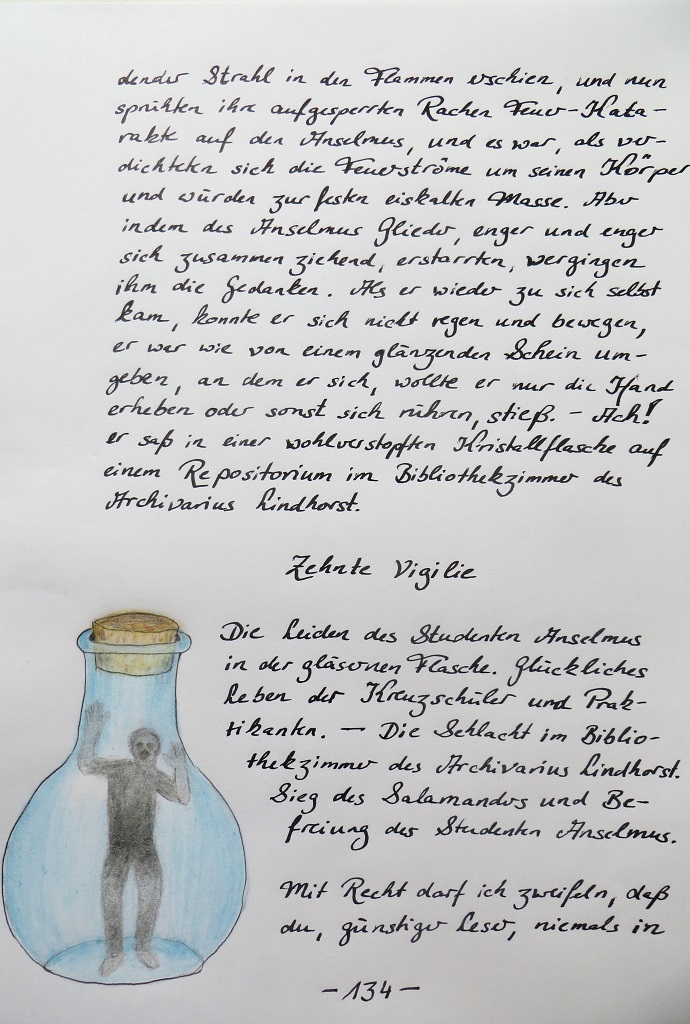 dender Strahl in den Flammen erschien, und nun
sprühten ihre aufgesperrten Rachen Feuer-Kata-
rakte auf den Anselmus, und es war, als ver-
dichteten sich die Feuerströme um seinen Körper
und würden zur festen eiskalten Masse. Aber
indem des Anselmus Glieder, enger und enger
sich zusammen ziehend, erstarrten, vergingen
ihm die Gedanken. Als er wieder zu sich selbst
kam, konnte er sich nicht regen und bewegen,
er war wie von einem glänzenden Schein um-
geben, an dem er sich, wollte er nur die Hand
erheben oder sonst sich rühren, stieß. - Ach!
er saß in einer wohlverstopften Kristallflasche auf
einem Repositorium im Bibliothekzimmer des
Archivarius Lindhorst.
Zehnte Vigilie
Die Leiden des Studenten Anselmus
in der gläsernen Flasche. Glückliches
Leben der Kreuzschüler und Prak-
tikanten. — Die Schlacht im Biblio-
thekzimmer des Archivarius Lindhorst.
Sieg des Salamanders und Be-
freiung des Studenten Anselmus.
Mit Recht darf ich zweifeln, daß
du, günstiger Leser, niemals in
- 134 -